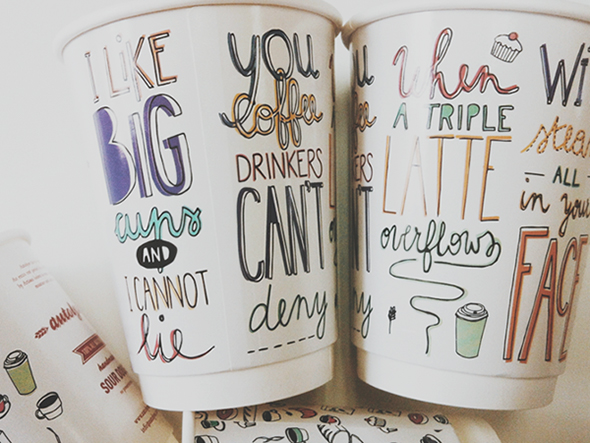 I LIKE
BIG
cups
AND
I CANNOT
lie
YOU
coffee
DRINKERS
CAN'T
deny
When
A TRIPLE
LATTE
overflows
ALL
in your
SOUR